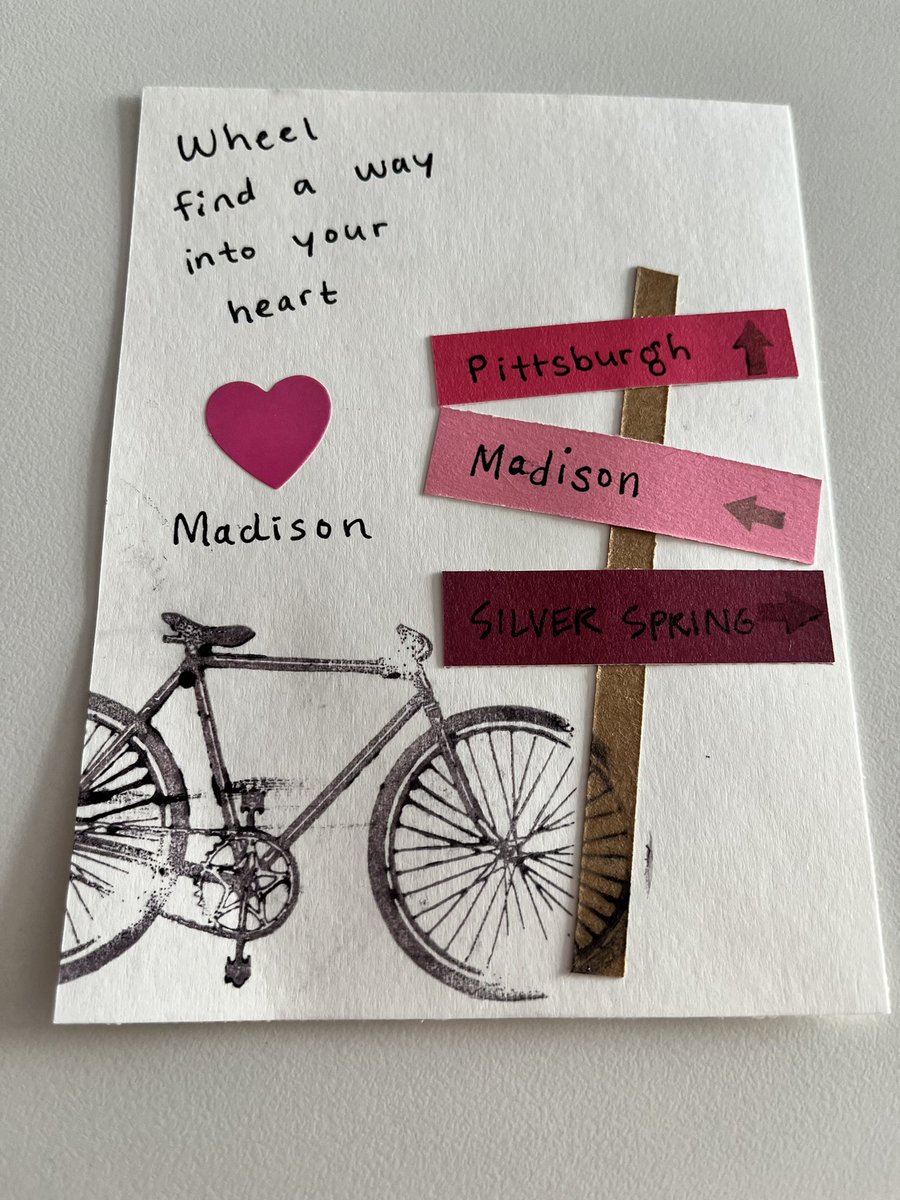 Wheel
find a way
into your
heart
Madison
Pittsburgh
Madison
SILVER SPRING